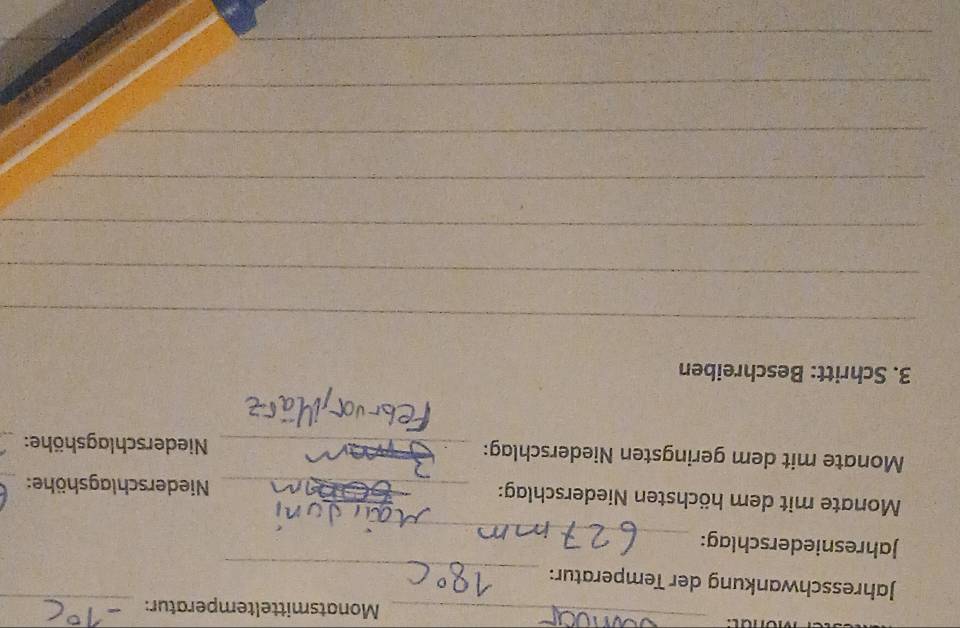 Monat: Januar Monatsmitteltemperatur: -1°C
Jahresschwankung der Temperatur: 18°C
Jahresniederschlag: 627mm
Mai, Juni
Monate mit dem höchsten Niederschlag: Niederschlagshöhe:
Monate mit dem geringsten Niederschlag: Niederschlagshöhe:
Februar, März
3. Schritt: Beschreiben